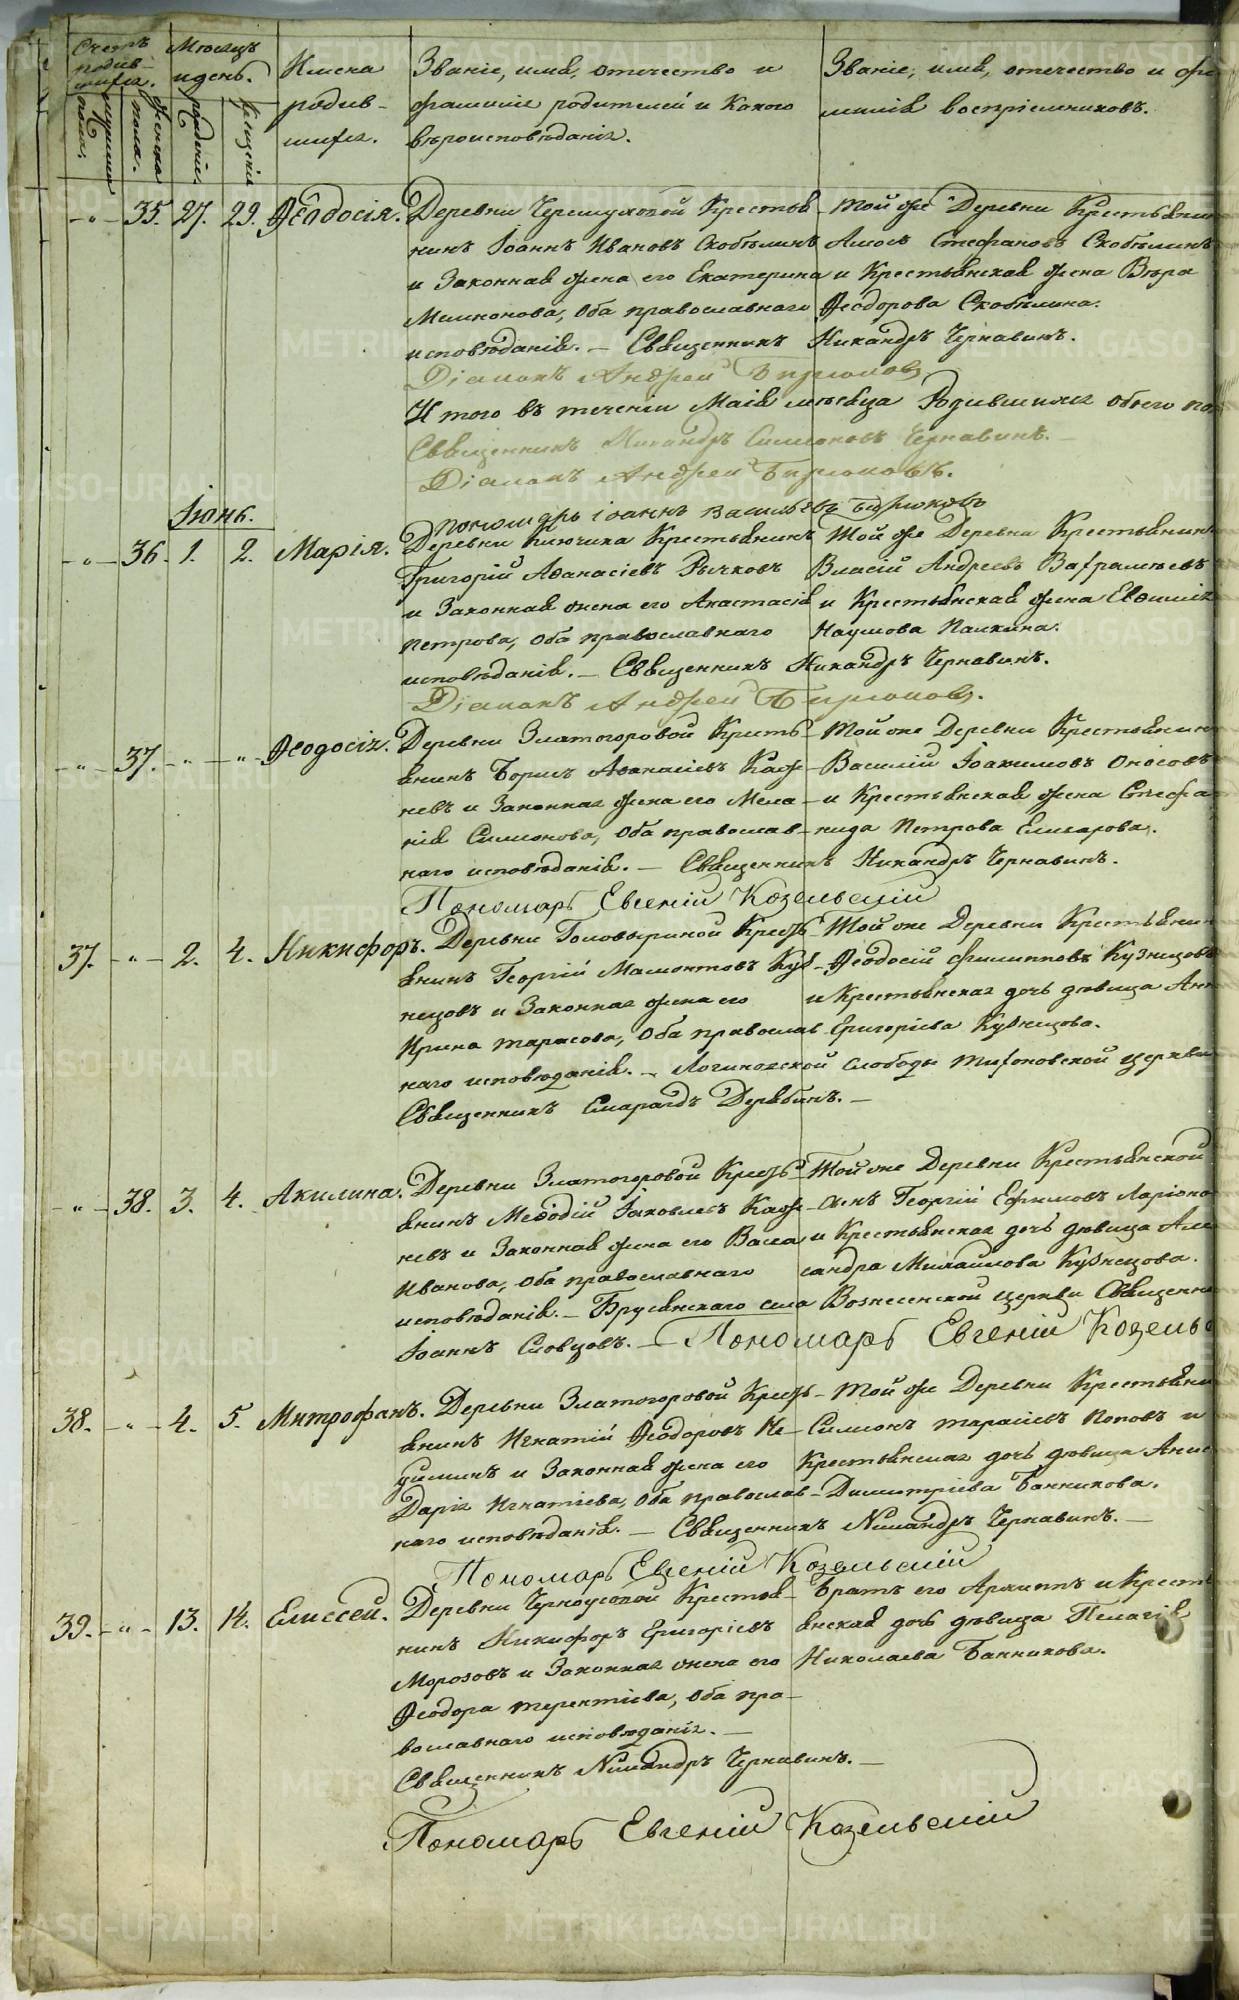 Счетъ родив-шихся.
Мѣсяцъ и день.
Имена родив-шихся.
Званіе, имя, отчество и фамилія родителей и какого вѣроисповѣданія.
Званіе, имя, отчество и фа-милія воспріемниковъ.
мужеска пола.
женска пола.
рожденія.
крещенія
-„- 35. 27. 29. Ѳеодосія. Деревни Черемуховой Крестья- Той же Деревни Крестьянинъ
нинъ Іоаннъ Ивановъ Скобѣлинъ Амосъ Стефановъ Скобѣлинъ
и Законная жена его Екатерина и Крестьянская жена Вѣра
оба православнаго Ѳеодорова Скобѣлина.
исповѣданія. — Священникъ Никандръ Чернавинъ.
Діаконъ Андрей Бирюковъ
Итого въ теченіи Маія мѣсяца Родившихся обоего по
Священникъ Никандръ Симеоновъ Чернавинъ. —
Діаконъ Андрей Бирюковъ.
Пономарь Іоаннъ Васильевъ Бирюковъ
Іюнь.
-„- 36. 1. 2. Марія. Деревни Ключика Крестьянинъ Той же Деревни Крестьянин
Григорій Аѳанасіевъ Рычковъ Власій Андреевъ Варѳаломѣевъ
и Законная жена его Анастасія и Крестьянская жена Евѳимія
Петрова, оба православнаго Наумова Палкина.
исповѣданія. — Священникъ Никандръ Чернавинъ.
Діаконъ Андрей Бирюковъ.
-„- 37. -„- -„- Ѳеодосія. Деревни Златогоровой Кресть- Той же Деревни Крестьянин
янинъ Борисъ Аѳанасіевъ Каж- Василій Іоакимовъ Оносовъ
невъ и Законная жена его Мела- и Крестьянская жена Стефа
нія Симонова, оба православ- нида Петрова Елизарова.
наго исповѣданія. — Священникъ Никандръ Чернавинъ.
Пономарь Евгеній Козельскій
37. -„- 2. 4. Никифоръ. Деревни Головыриной Кресть- Той же Деревни Крестьянин
янинъ Георгій Мамонтовъ Куз- Ѳеодосій Филипповъ Кузнецовъ
нецовъ и Законная жена его и Крестьянская дочь дѣвица Анн
Ирина Тарасова, оба православ- Григоріева Кузнецова.
наго исповѣданія. — Логиновской слободы Тихоновской церкви
Священникъ Смарагдъ Дерябинъ. —
-„- 38. 3. 4. Акилина. Деревни Златогоровой Кресть- Той же Деревни Крестьянской
янинъ Меѳодій Іаковлевъ Каж- сынъ Георгій Ефимовъ Ларіоно
невъ и Законная жена его Васса и Крестьянская дочь дѣвица Але
Иванова, оба православнаго сандра Михайлова Кузнецова.
исповѣданія. — Брусянскаго села Вознесенской церкви Священни
Іоаннъ Словцовъ. — Пономарь Евгеній Козельс
38. -„- 4. 5. Митрофанъ. Деревни Златогоровой Кресть- Той же Деревни Крестьяни
янинъ Игнатій Ѳеодоровъ Не- Симеонъ Тарасіевъ Поповъ и
и Законная жена его Крестьянская дочь дѣвица Анис
Дарія Игнатіева, оба православ- Димитріева Банникова.
наго исповѣданія. — Священникъ Никандръ Чернавинъ. —
Пономарь Евгеній Козельскій
39. -„- 13. 14. Елиссей. Деревни Черноусовой Крестья- Братъ его Архиппъ и Кресть
нинъ Никифоръ Григоріевъ янская дочь дѣвица Пелагія
Морозовъ и Законная жена его Николаева Банникова.
Ѳеодора Терентіева, оба пра-
вославнаго исповѣданія. —
Священникъ Никандръ Чернавинъ. —
Пономарь Евгеній Козельскій
METRIKI.GASO-URAL.RU